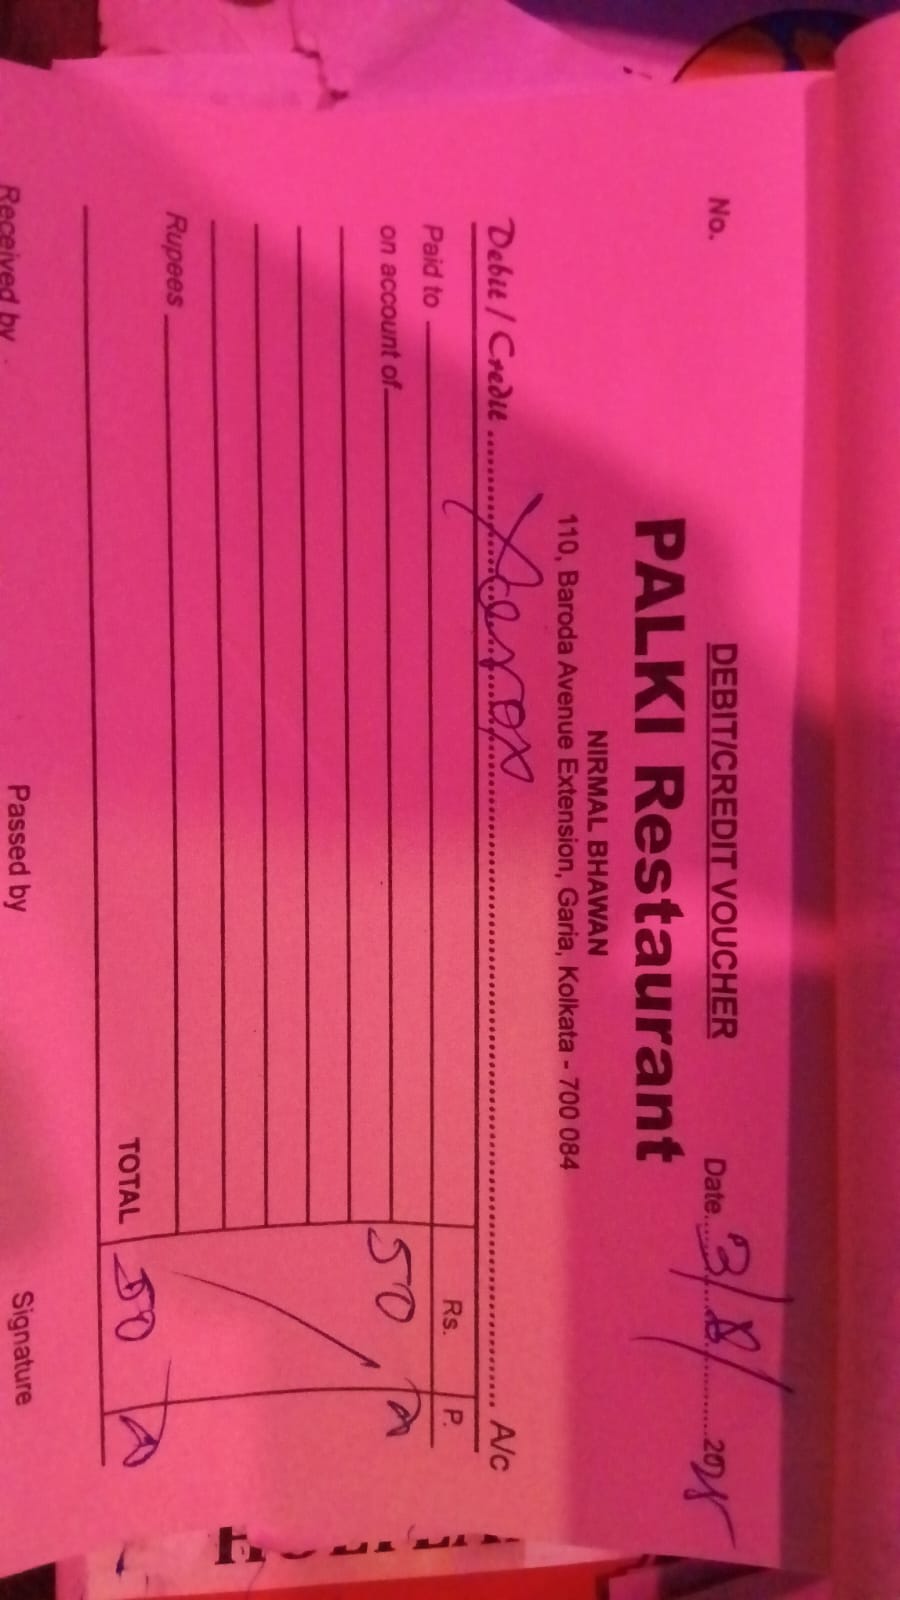 DEBIT/CREDIT VOUCHER
No. Date 3/8/2025
PALKI Restaurant
NIRMAL BHAWAN
110, Baroda Avenue Extension, Garia, Kolkata - 700 084
Debit / Credit Xerox A/c
Paid to Rs. P.
on account of 50
Rupees
TOTAL 50
Received by Passed by Signature